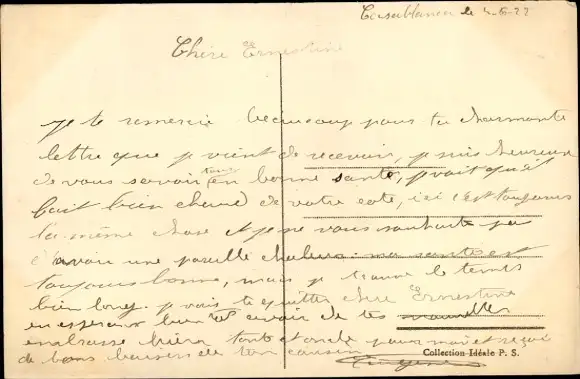 Casablanca le 4-6-22
Chère Ernestine
je te remercie beaucoup pour ta charmante
lettre que je vient de recevoir, je suis heureux
de vous savoir tous en bonne santé, parait qu'il
fait bien chaud de votre coté, ici c'est toujours
la même chose et je ne vous souhaite pas
d'avoir une pareille chaleur. ma santé est
toujours bonne, mais je trouve le temps
bien long. je vais te quitter chère Ernestine
en esperant bien avoir de tes nouvelles
embrasse bien tante et oncle pour moi et reçoi
de bons baisers de ton cousin
Eugène
Collection Idéale P. S.